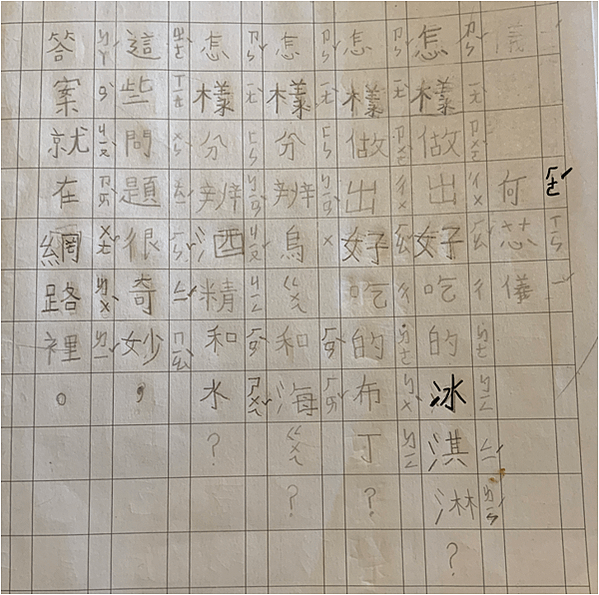 何芯儀
怎樣做出好吃的冰淇淋?
怎樣做出好吃的布丁?
怎樣分辨烏ㄍㄨㄟ和海ㄍㄨㄟ?
怎樣分辨酒精和水?
這些問題很奇妙，
答案就在網路裡。